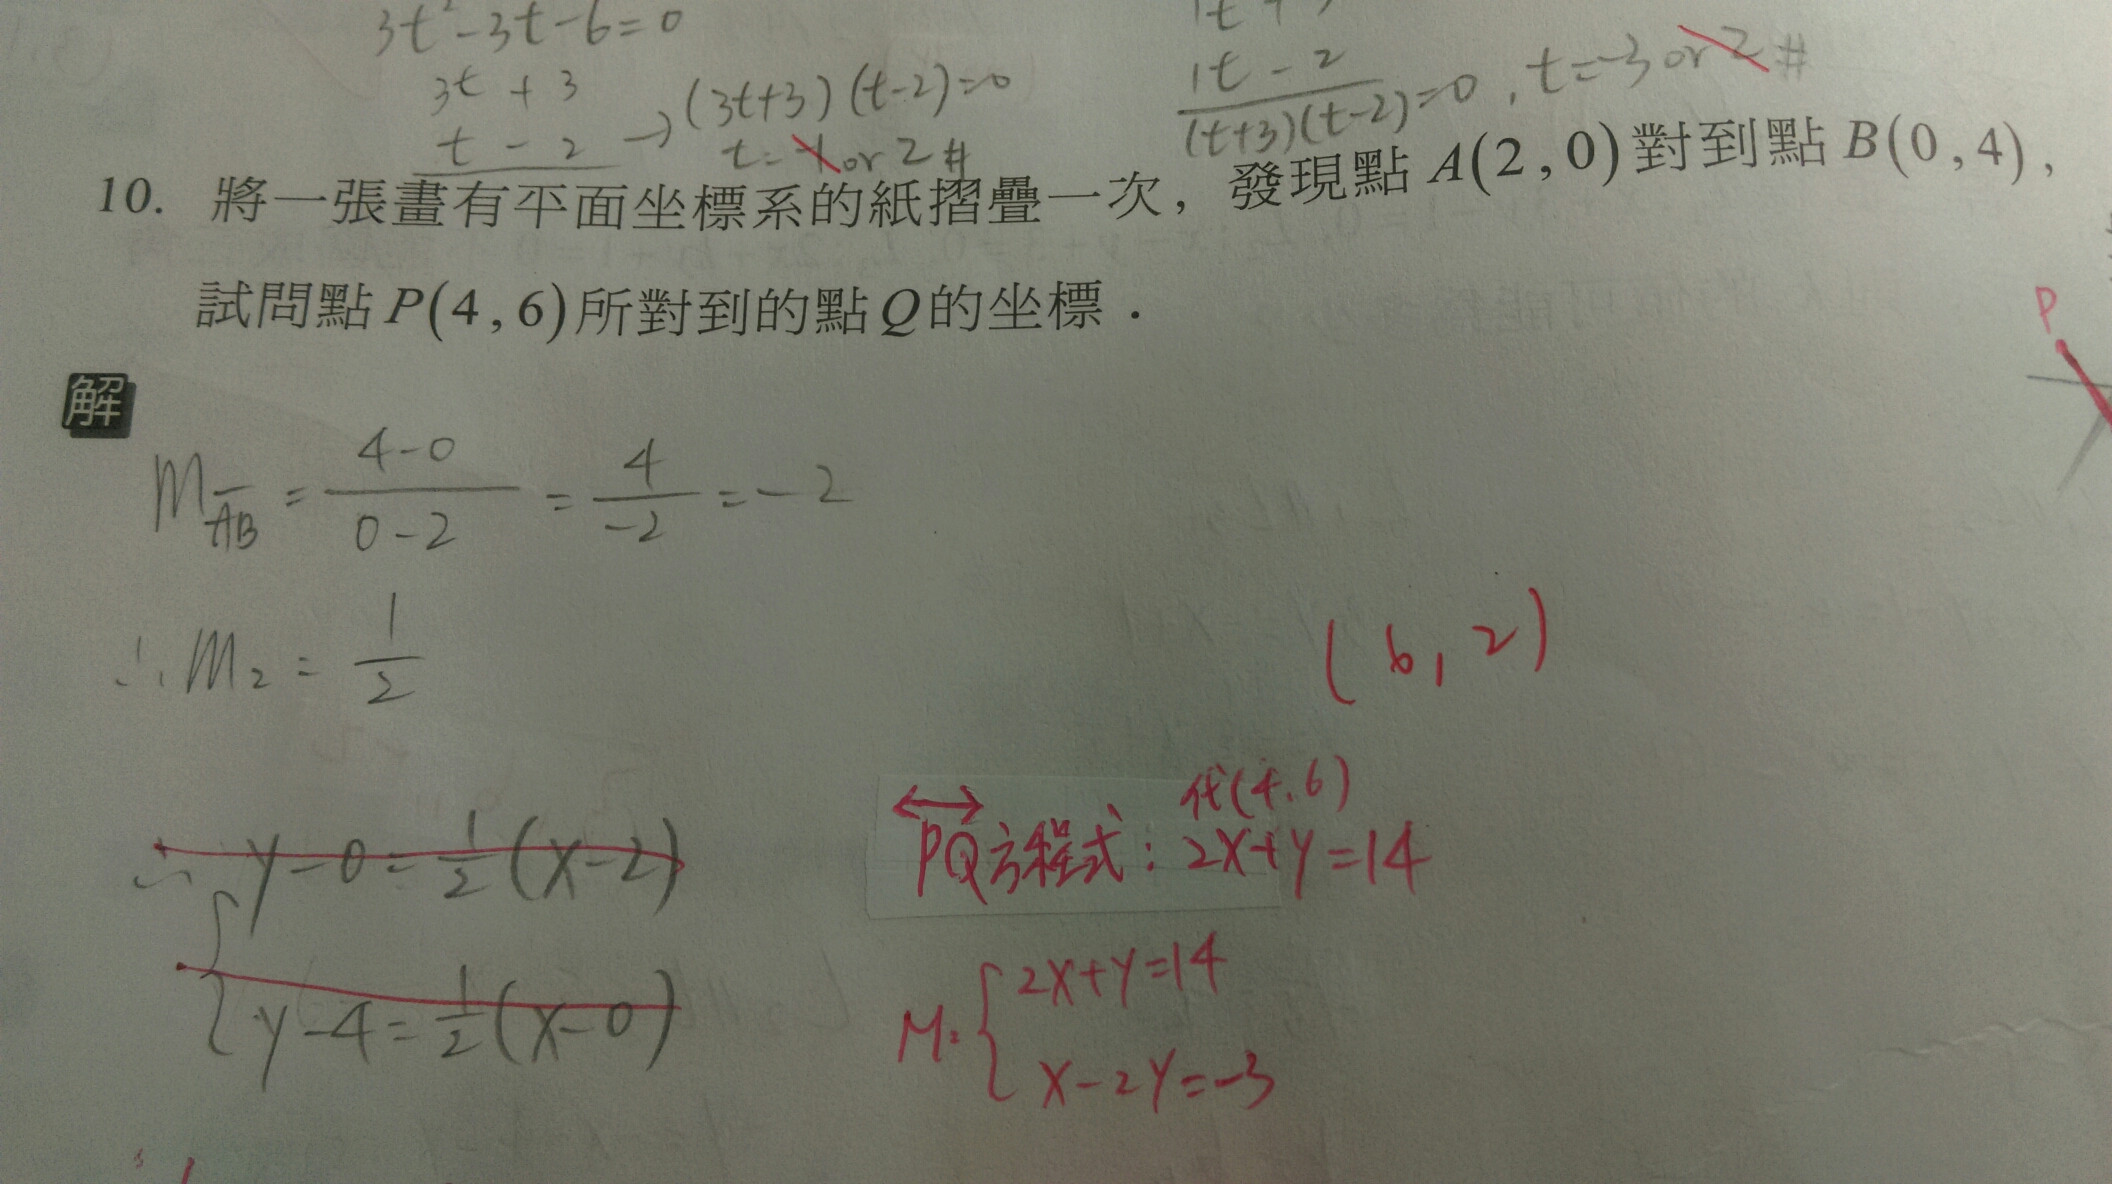 3t²-3t-6=0
3t + 3
t - 2 → (3t+3)(t-2)=0
t=-1 or 2 #
1t - 2
(t+3)(t-2)=0, t=-3 or 2 #
10. 將一張畫有平面坐標系的紙摺疊一次，發現點 A(2,0) 對到點 B(0,4)，
試問點 P(4,6) 所對到的點 Q 的坐標．
P
解
M_AB = 4-0 / 0-2 = 4 / -2 = -2
∴ M₂ = 1/2
(6,2)
∴ y-0 = 1/2 (x-2)
y-4 = 1/2 (x-0)
代(4,6)
PQ方程式: 2X+Y=14
M: { 2X+Y=14
X-2Y=-3